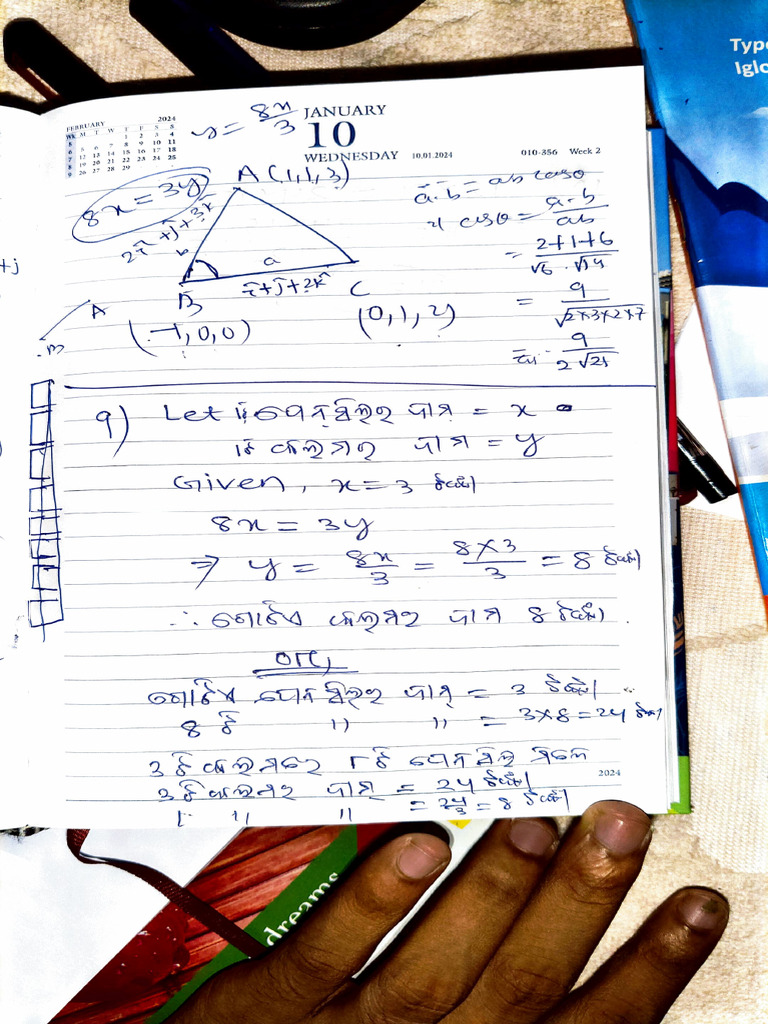 Type
Iglo
FEBRUARY 2024
Wk M T W T F S S
5 1 2 3 4
6 5 6 7 8 9 10 11
7 12 13 14 15 16 17 18
8 19 20 21 22 23 24 25
9 26 27 28 29
y = 8x/3
JANUARY
10
WEDNESDAY 10.01.2024
010-356 Week 2
8x = 3y
A (1,1,3)
2î+ĵ+3k̂
b
a
B
î+ĵ+2k̂
C
(-1,0,0)
(0,1,2)
a·b = ab cosθ
cosθ = a·b/ab
= 2+1+6/√6·√14
= 9/√2×3×2×7
= 9/2√21
+j
A
B
9) Let 1ଟି ପେନ୍‌ସିଲର ଦାମ = x
1ଟି କଲମର ଦାମ = y
Given, x = 3 ଟଙ୍କା
8x = 3y
⇒ y = 8x/3 = 8×3/3 = 8 ଟଙ୍କା
∴ ଗୋଟିଏ କଲମର ଦାମ 8 ଟଙ୍କା
or,
ଗୋଟିଏ ପେନ୍‌ସିଲର ଦାମ୍ = 3 ଟଙ୍କା
8 ଟି '' '' = 3×8=24 ଟଙ୍କା
3 ଟି କଲମରେ 8ଟି ପେନ୍‌ସିଲ ମିଳେ
3 ଟି କଲମର ଦାମ୍ = 24 ଟଙ୍କା
'' '' = 24/3 = 8 ଟଙ୍କା
2024
dreams